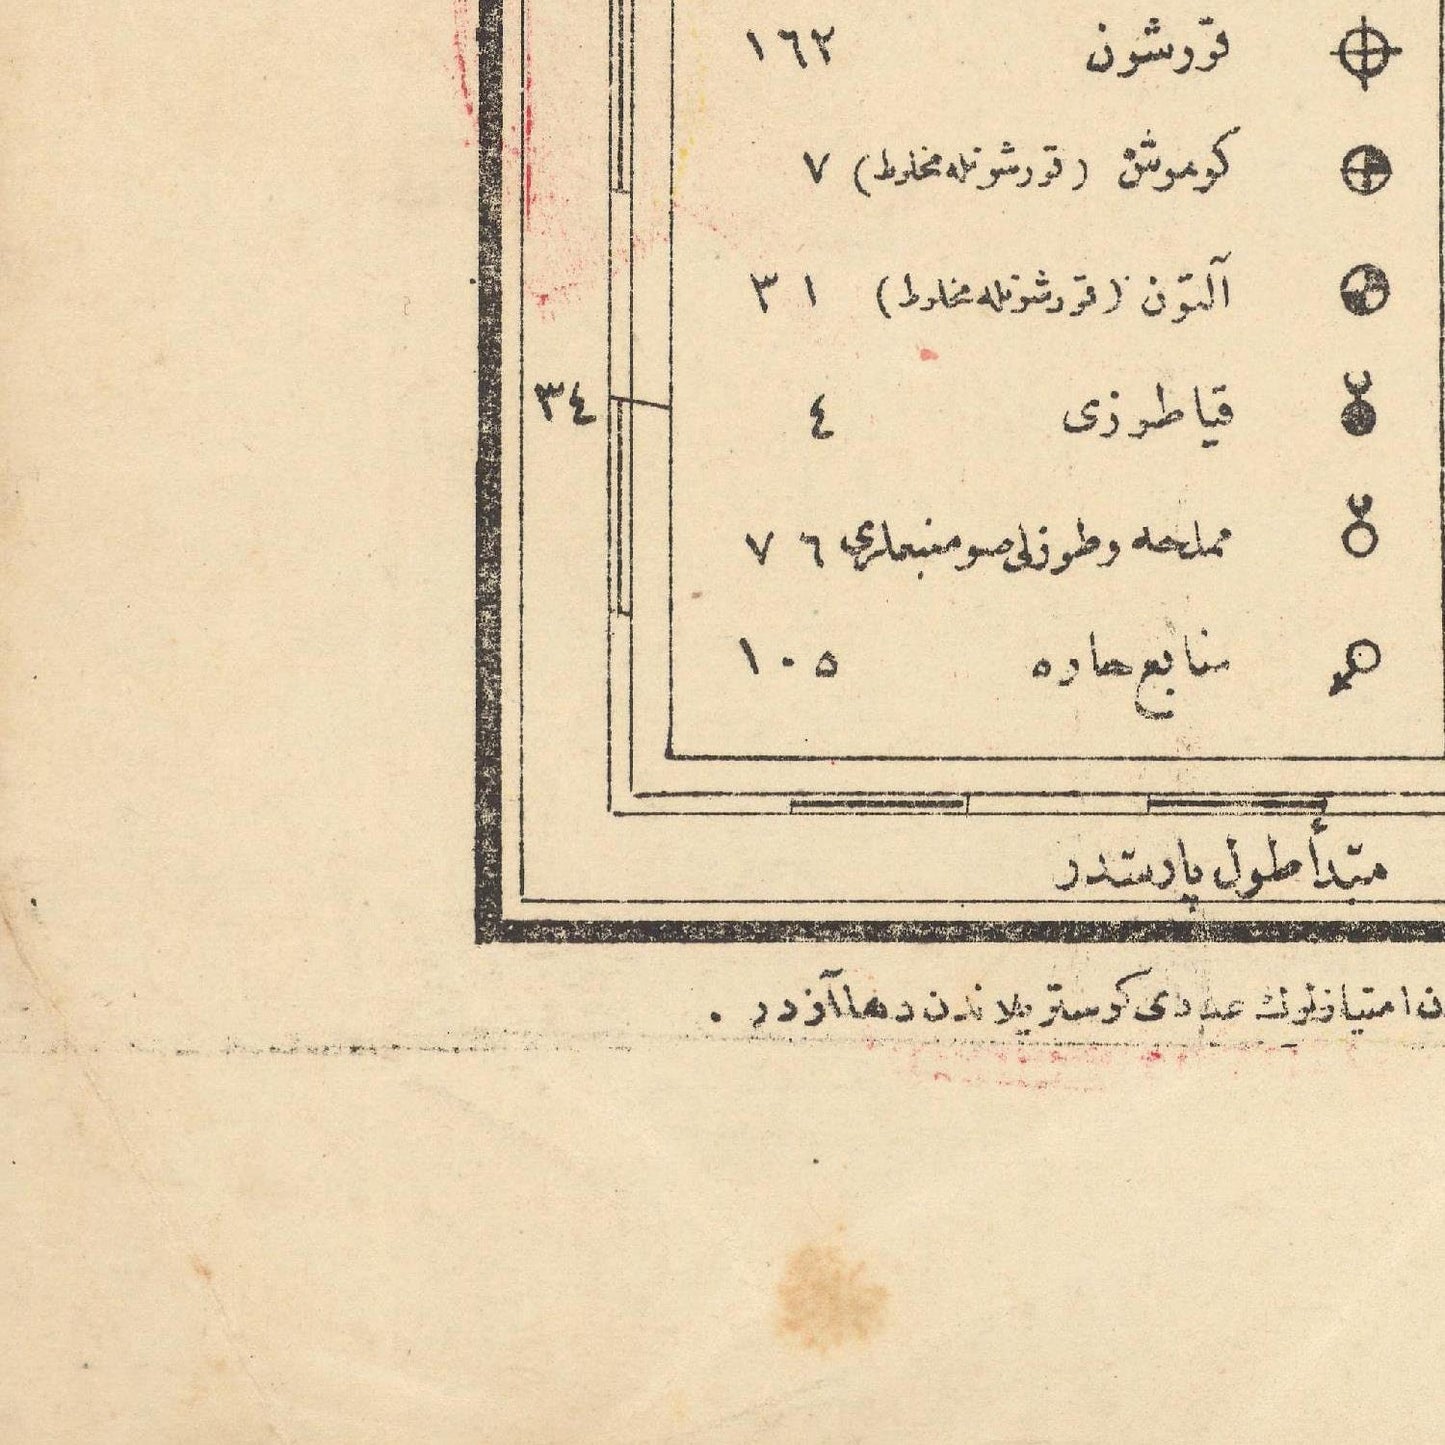 قورشون ١٦٢
كوموش (قورشونله مخلوط) ٧
آلتون (قورشونله مخلوط) ٣١
٣٤
قيا طوزى ٤
مملحه وطوزلى صو منبعلرى ٧٦
منابع حاره ١٠٥
مبدأ طول پارستدر
ن امتيازلرك عددى كوستريلاندن دها آزدر .